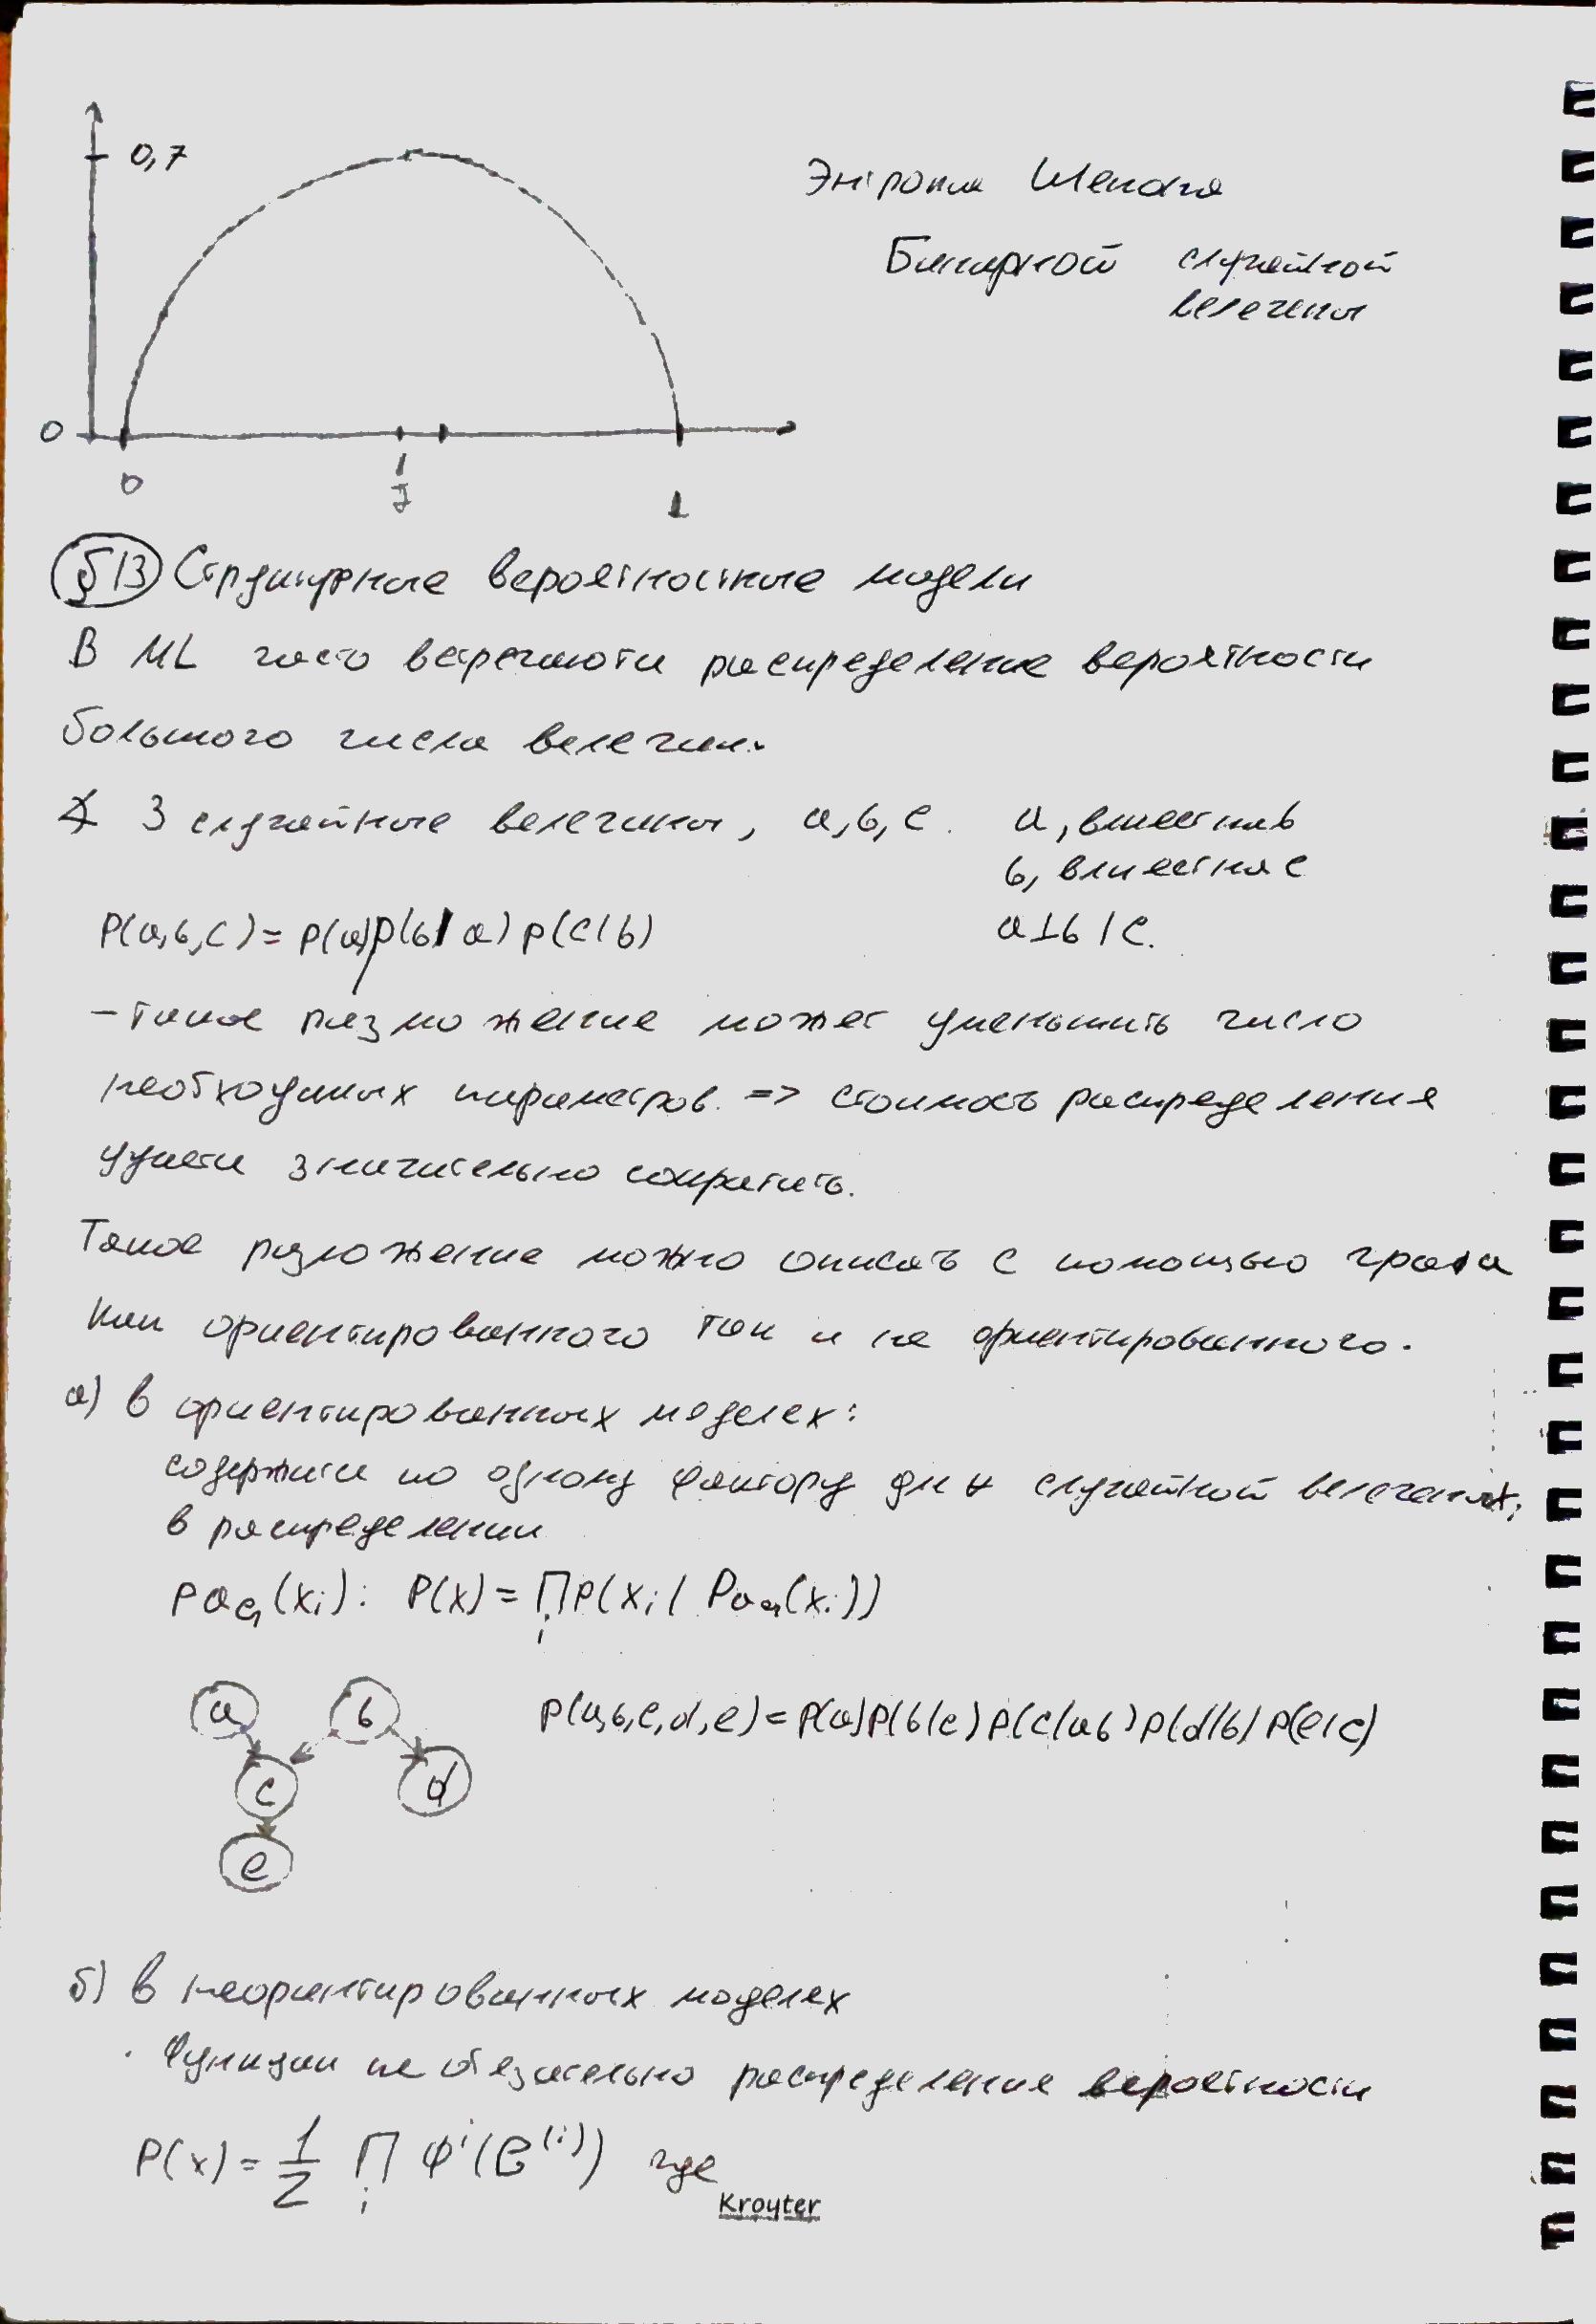 0,7
Энтропия Шенона
Бинарной случайной
величены
0
0 1
§13 Структурные вероятностные модели
В ML часто встречаются распределение вероятности
большого числа величин.
∢ 3 случайные величины, a, b, c. a, влияет на b
b, влияет на c
P(a,b,c) = p(a)p(b|a)p(c|b) a⊥b|c.
- Такое разложение может уменьшить число
необходимых параметров. => стоимость распределения
удается значительно сократить.
Такое разложение можно описать с помощью графа
как ориентированного так и не ориентированного.
а) в ориентированных моделях:
содержится по одному фактору для ∀ случайной величены xi
в распределении
paG(xi): P(x) = ∏i P(xi| PaG(xi))
a b p(a,b,c,d,e) = p(a)p(b|c)p(c|ab)p(d|b)p(e|c)
c d
e
б) в неориентированных моделях
· Функции не обязательно распределение вероятности
P(x) = 1/Z ∏i φ^i(C^(i)) где
Kroyter